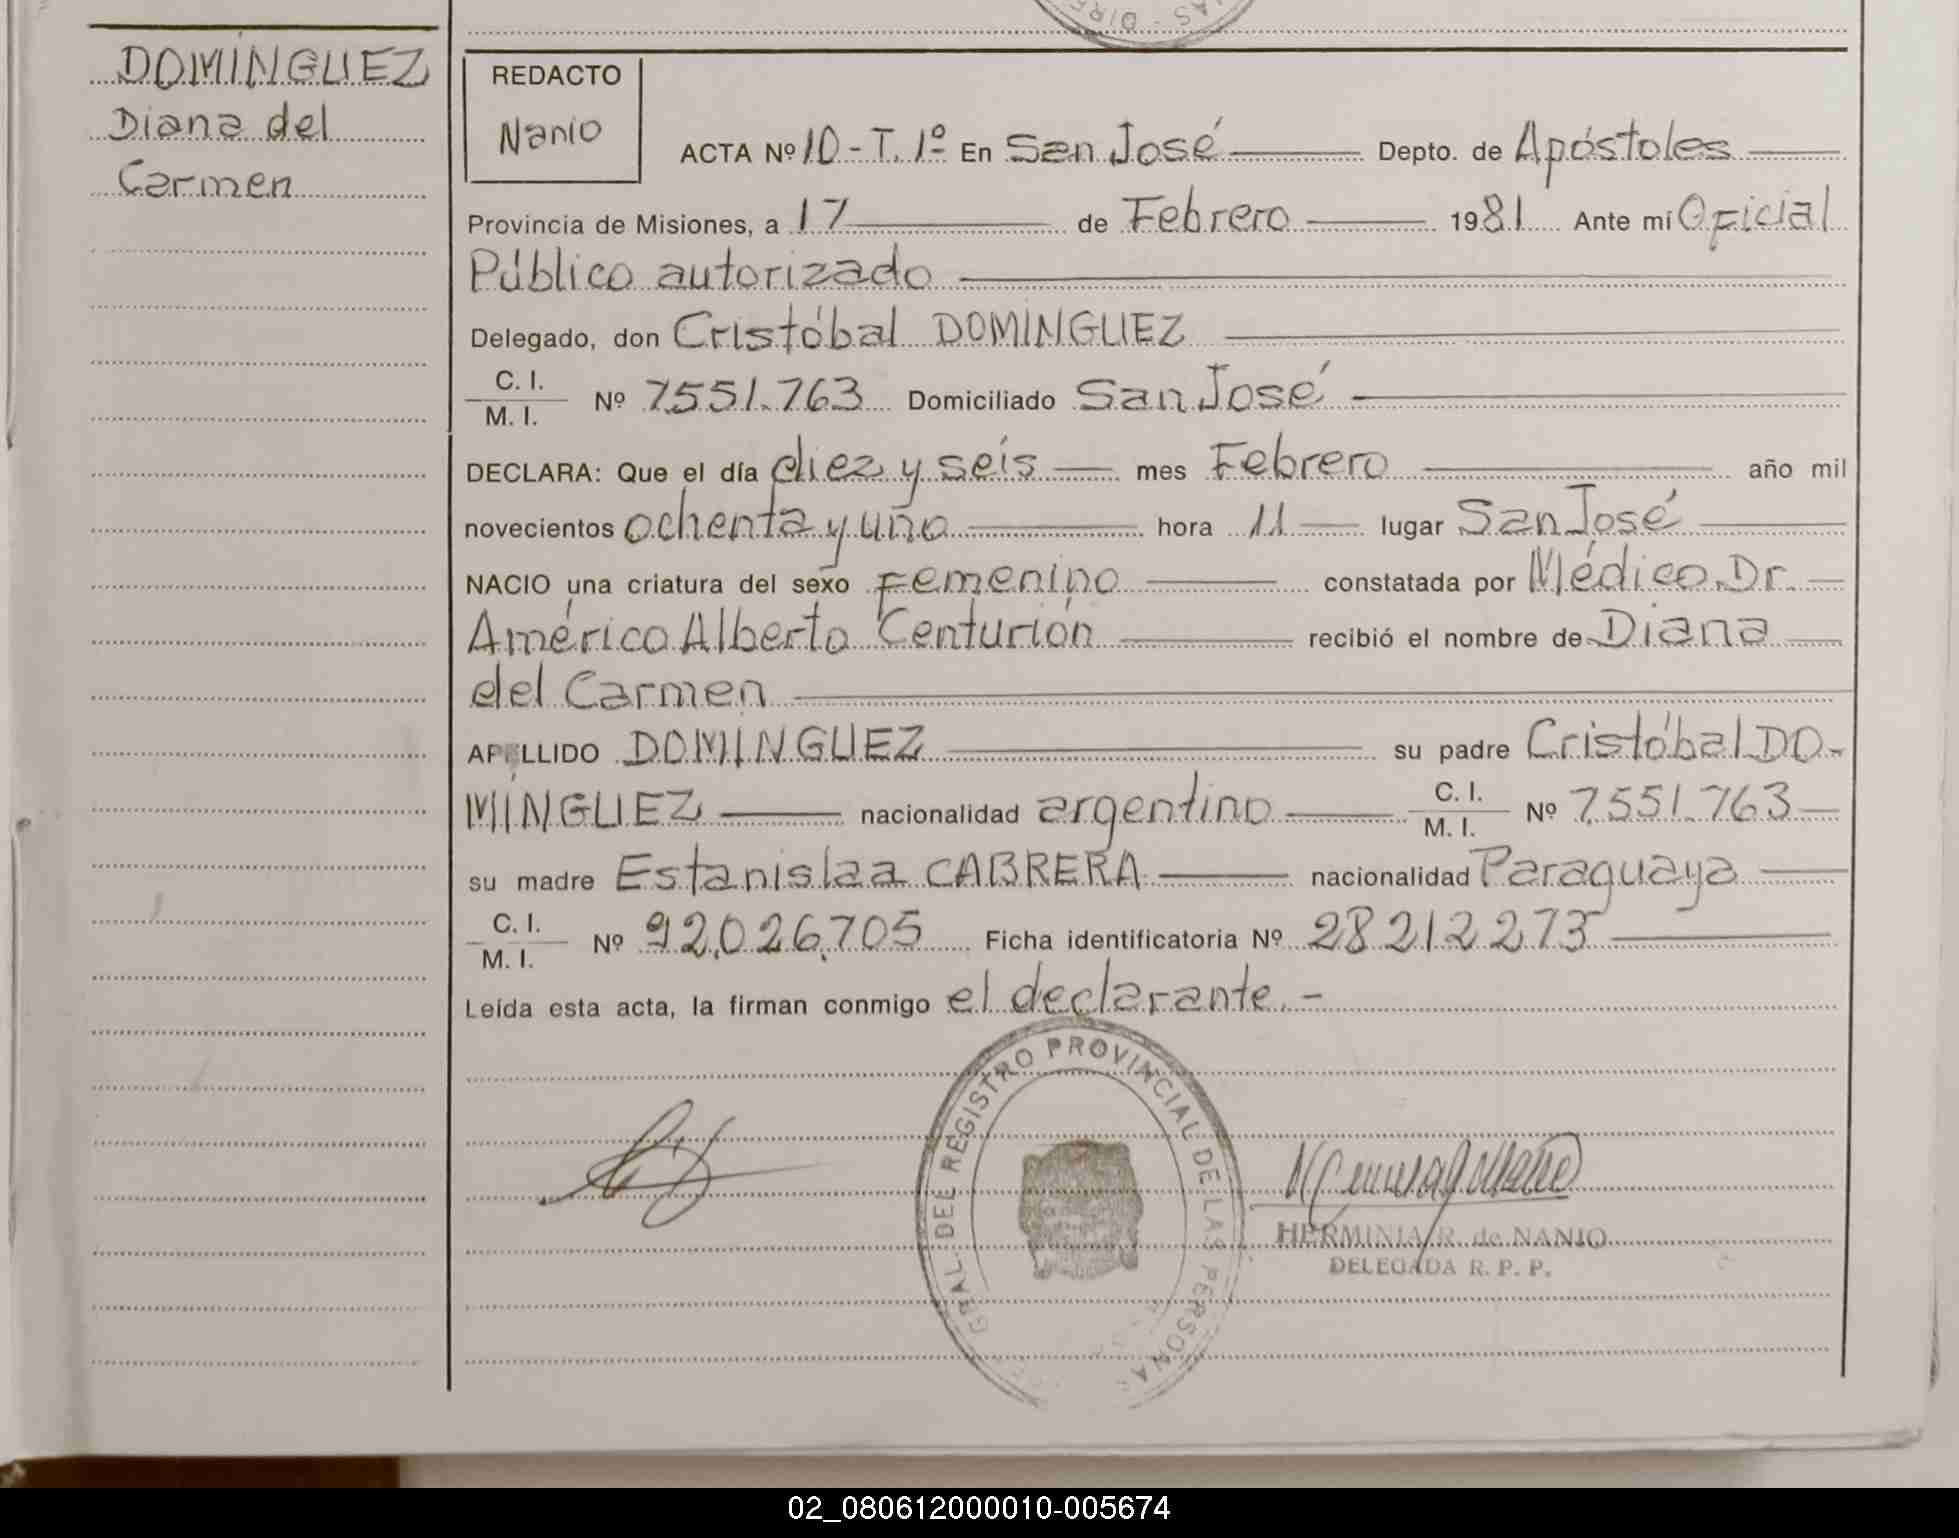 DOMÍNGUEZ
Diana del
Carmen
REDACTO
Nanio
ACTA Nº 10 - T. 1º En San José Depto. de Apóstoles
Provincia de Misiones, a 17 de Febrero 1981 Ante mí Oficial
Público autorizado
Delegado, don Cristóbal DOMINGUEZ
C. I.
M. I. Nº 7.551.763 Domiciliado San José
DECLARA: Que el día diez y seis mes Febrero año mil
novecientos ochenta y uno hora 11 lugar San José
NACIO una criatura del sexo femenino constatada por Médico Dr.
Américo Alberto Centurión recibió el nombre de Diana
del Carmen
APELLIDO DOMINGUEZ su padre Cristóbal DO-
MÍNGUEZ nacionalidad argentino C. I. M. I. Nº 7.551.763
su madre Estanislaa CABRERA nacionalidad Paraguaya
C. I.
M. I. Nº 92.026.705 Ficha identificatoria Nº 28212273
Leída esta acta, la firman conmigo el declarante.-
GRAL. DEL REGISTRO PROVINCIAL DE LAS PERSONAS
HERMINIA R. de NANIO
DELEGADA R. P. P.
02_080612000010-005674